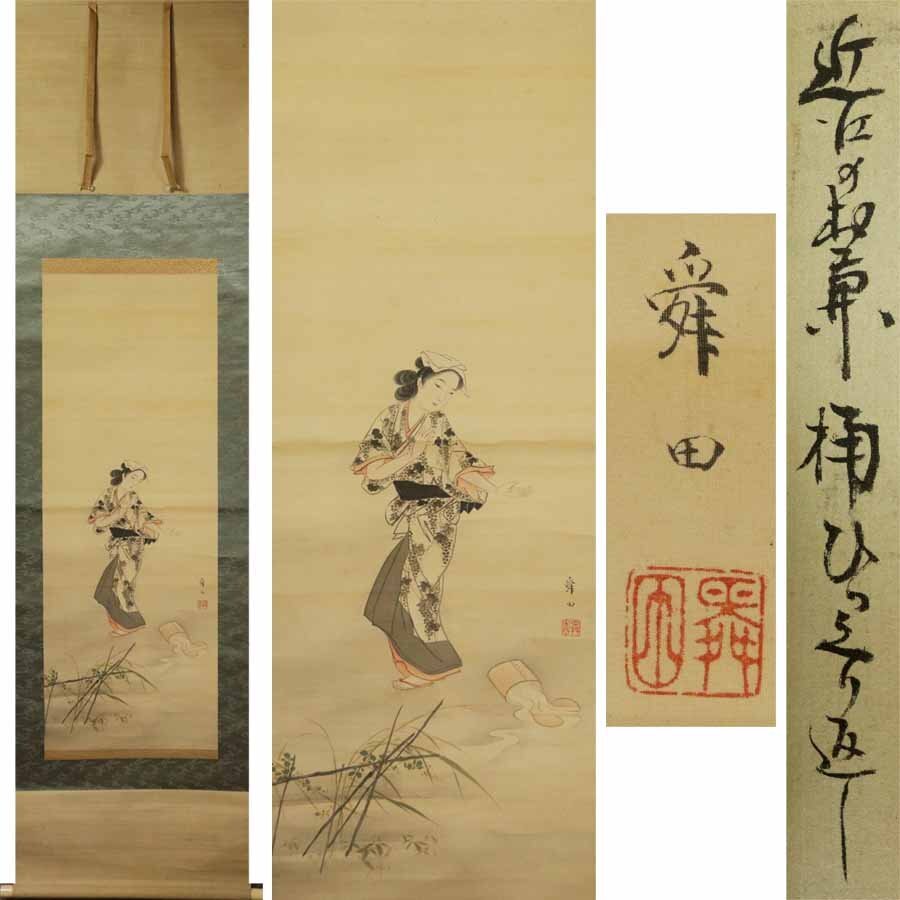 舜田
舜田
近江のお兼 桶ひっくり返し